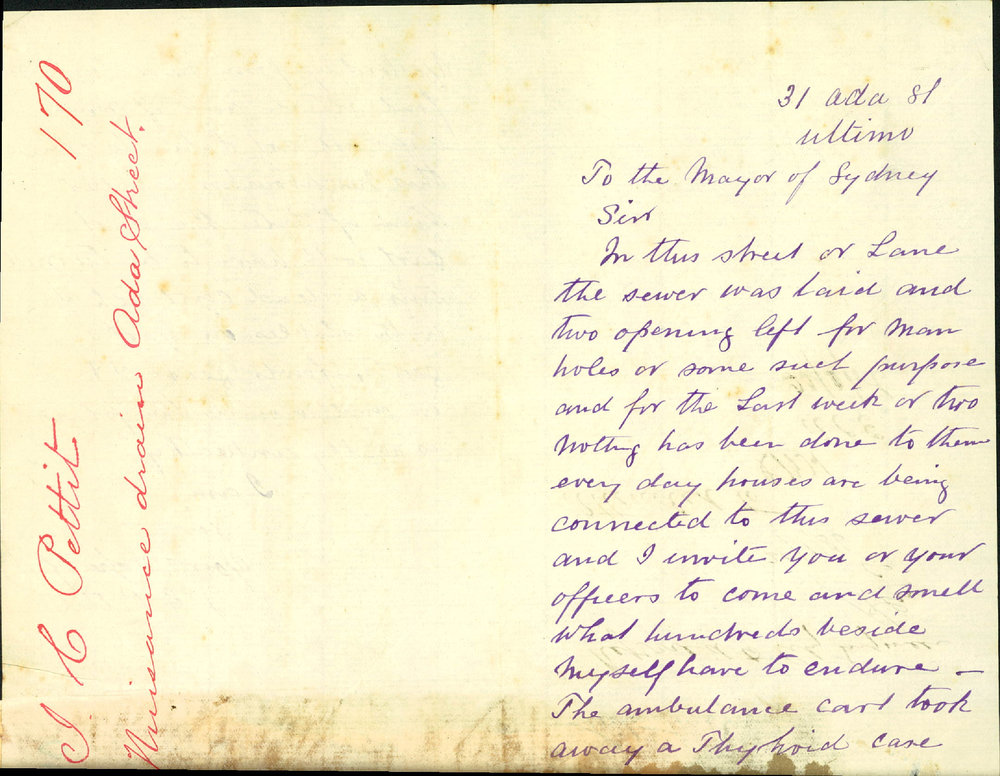 J C Pettit 170
Nuisance drain Ada Street.
31 Ada St
Ultimo
To the Mayor of Sydney
Sir
In this street or Lane
the sewer was laid and
two opening left for man
holes or some such purpose
and for the Last week or two
nothing has been done to them
every day houses are being
connected to this sewer
and I invite you or your
officers to come and smell
what hundreds beside
myself have to endure –
The ambulance cart took
away a Thyphoid case